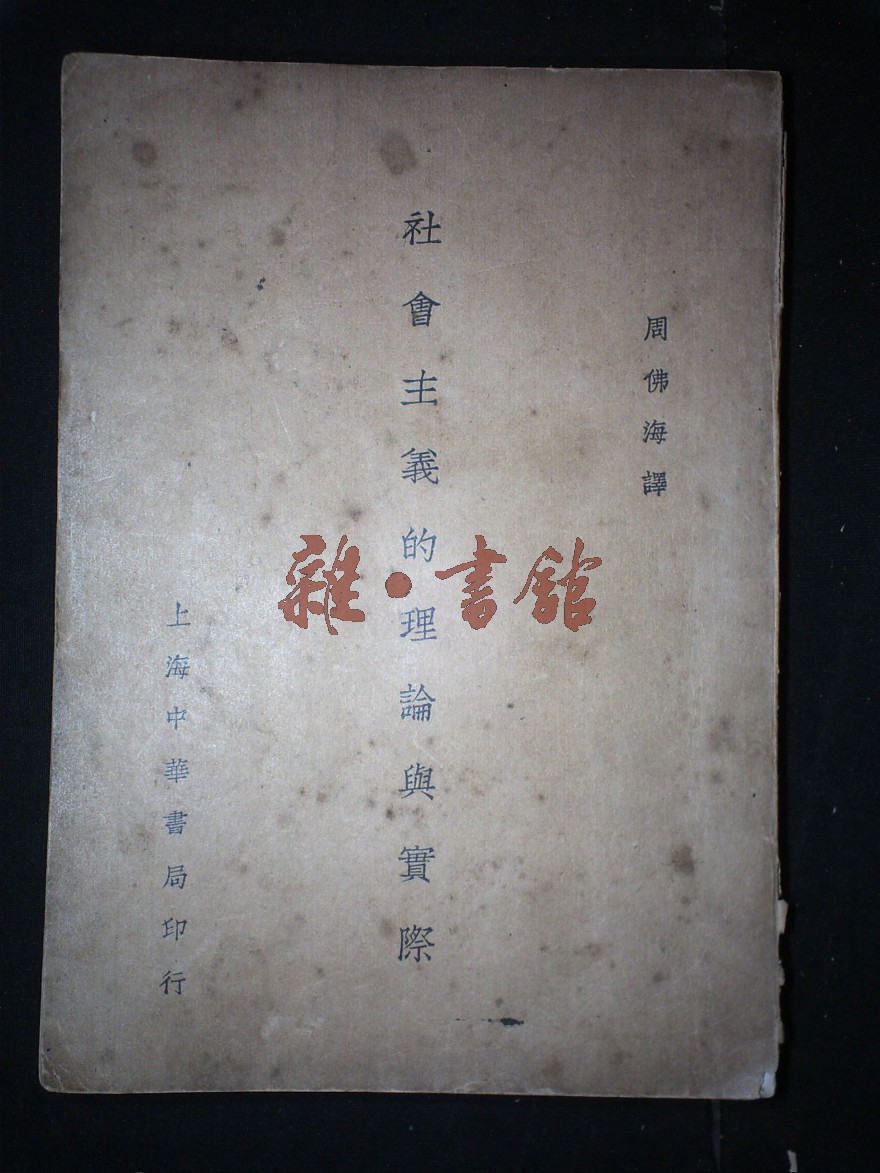 周佛海譯
社會主義的理論與實際
上海中華書局印行
雜·書館